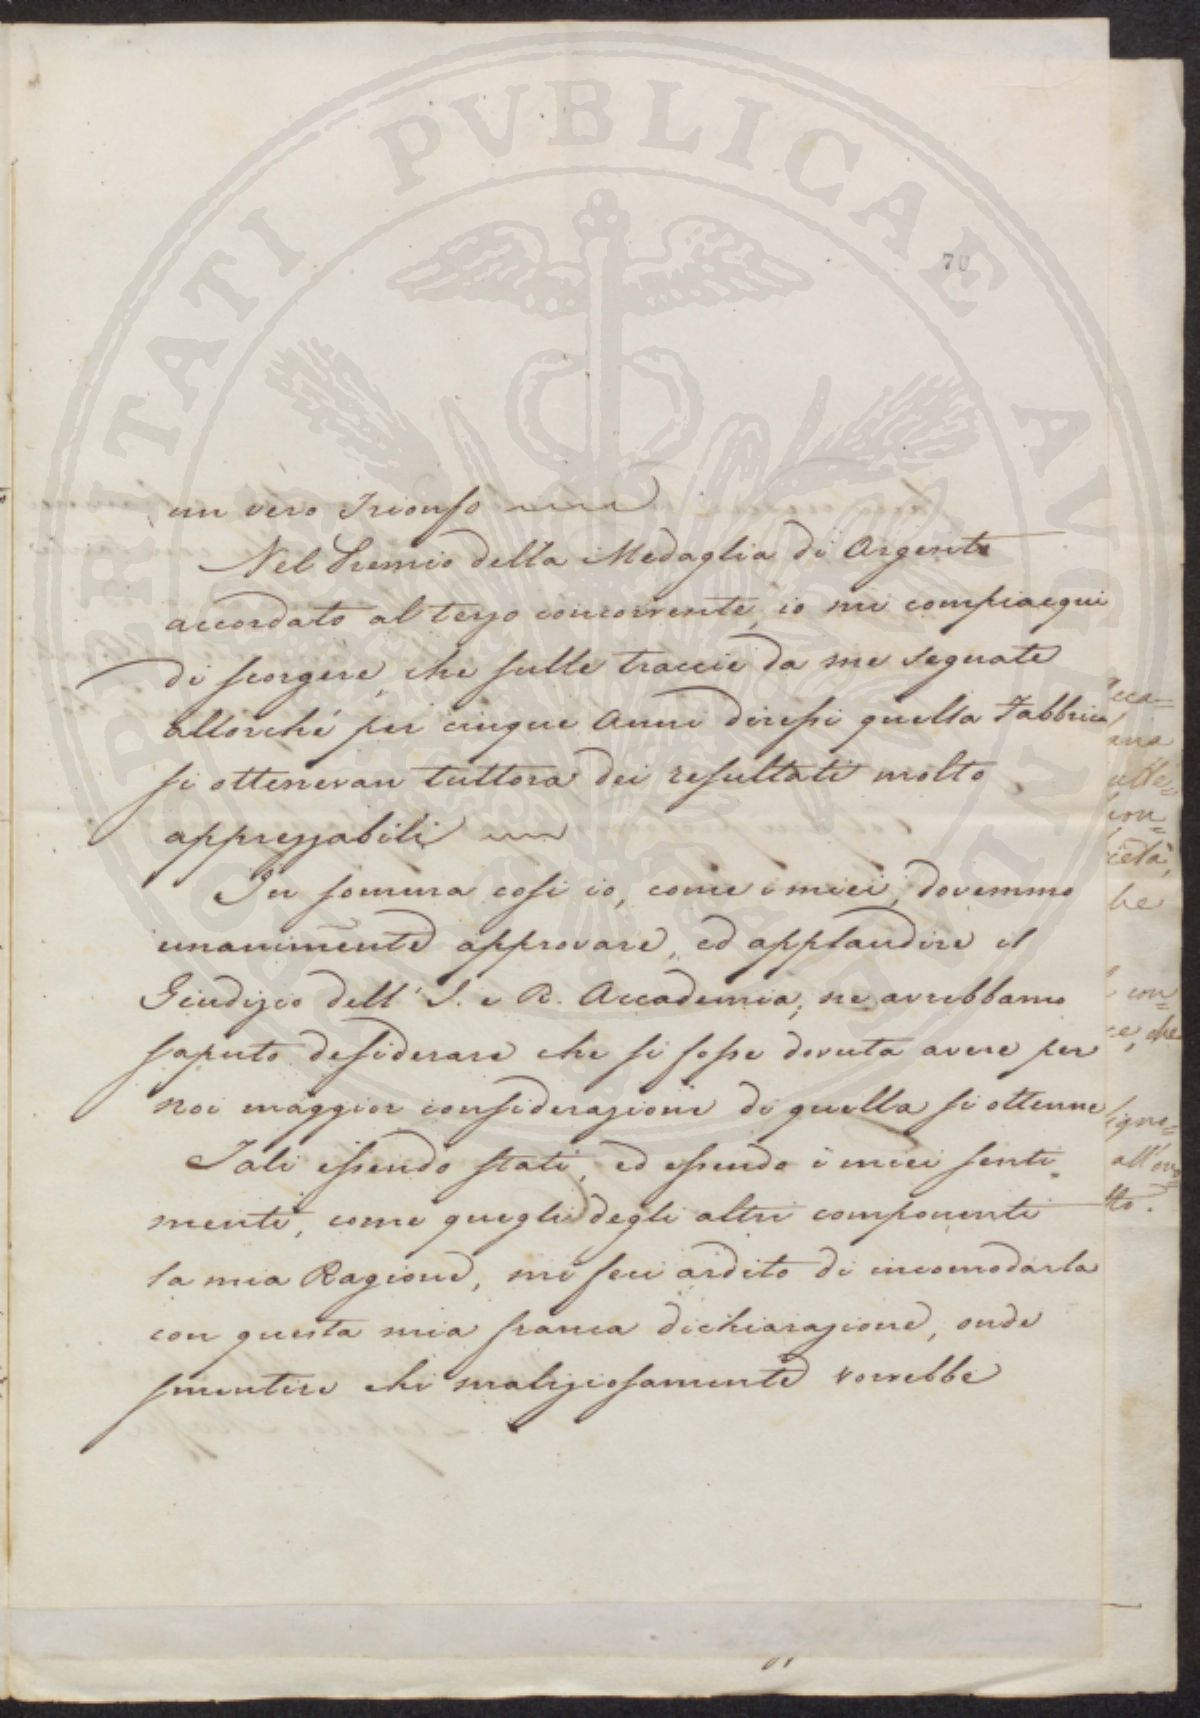 PROSPERITATI PVBLICAE AVGENDAE
70
un vero Trionfo
Nel Premio della Medaglia di Argento
accordato al terzo concorrente, io mi compiacqui
di scorgere, che sulle traccie da me segnate
allorché per cinque Anni diressi quella Fabbrica
si ottenevan tuttora dei resultati molto
apprezzabili
In somma così io, come i miei, dovemmo
unanimente approvare, ed applaudire il
Giudizio dell' I. e R. Accademia, ne avrebbamo
saputo desiderare che si fosse dovuta avere per
noi maggior considerazione di quella si ottenne
Tali essendo stati, ed essendo i miei senti=
menti, come quegli degli altri componenti
la mia Ragione, mi feci ardito di incomodarla
con questa mia franca dichiarazione, onde
smentire chi maliziosamente vorrebbe